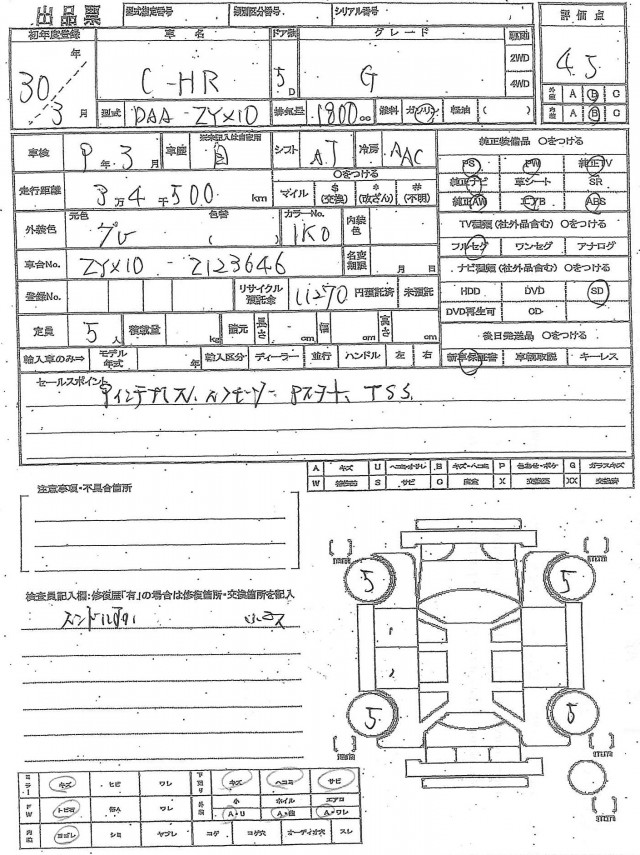 出品票 型式指定番号 類別区分番号 シリアル番号
初年度登録 車名 ドア数 グレード 駆動 評価点
30年3月 C-HR 5D G 2WD 4WD 4.5
外装 A B C
内装 A B C
型式 DAA-ZYX10 排気量 1800cc 燃料 ガソリン 軽油 ( )
車検 9年3月 車歴 自 シフト AT 冷房 AAC
※未記入は自家用
純正装備品 ○をつける
PS PW 純正TV
走行距離 3万4千500km ○をつける
マイル $(交換) *(改ざん) #(不明)
純正ナビ 革シート SR
純正AW エアB ABS
外装色 元色 グレ 色替 ( ) カラーNo. 1K0 内装色
TV種類(社外品含む) ○をつける
フルセグ ワンセグ アナログ
車台No. ZYX10-2123646 名変期限 月 日
ナビ種類(社外品含む) ○をつける
HDD DVD SD
登録No. リサイクル預託金 11270円預託済 未預託
DVD再生可 CD
定員 5人 積載量 kg 諸元 長さ cm 幅 cm 高さ cm
後日発送品 ○をつける
輸入車のみ⇒ モデル年式 年 輸入区分 ディーラー 並行 ハンドル 左 右
新車保証書 車輌取説 キーレス
セールスポイント
TSS
A キズ U ヘコミ B キズ・ヘコミ P G ガラスキズ
W S サビ C 腐食 X 交換歴 XX 交換済
注意事項・不具合箇所
検査員記入欄:修復歴「有」の場合は修復箇所・交換箇所を記入
5 5
5 5
ミラー キズ ヒビ ワレ キズ ヘコミ サビ
FW トビ石 ワレ 小 ホイル エアロ
A・U A・ワレ
内装 ヨゴレ シミ ヤブレ コゲ コゲ穴 オーディオ穴 スレ